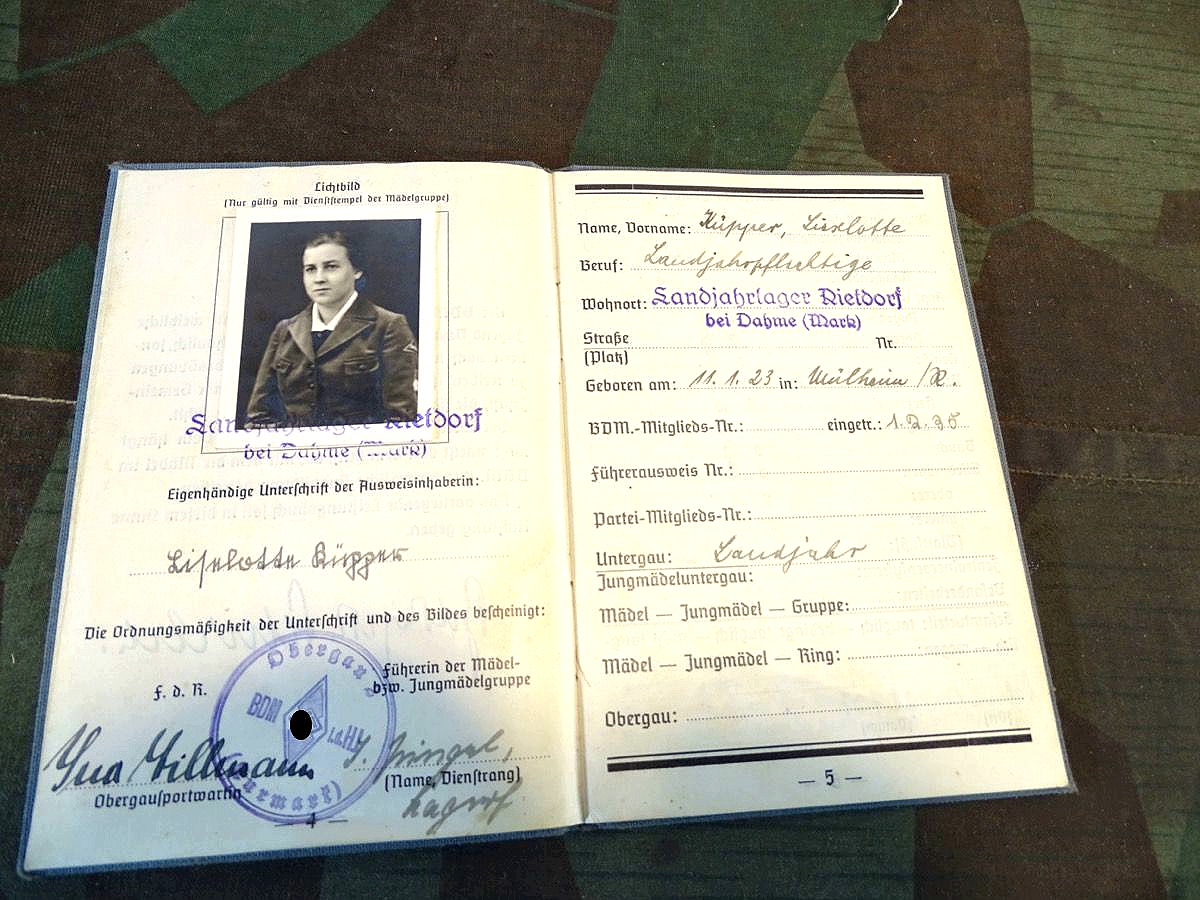 Lichtbild
(Nur gültig mit Dienststempel der Mädelgruppe)
Landjahrlager Rietdorf
bei Dahme (Mark)
Eigenhändige Unterschrift der Ausweisinhaberin:
Liselotte Küpper
Die Ordnungsmäßigkeit der Unterschrift und des Bildes bescheinigt:
Obergau 2
BDM
i.d.HJ
(Kurmark)
F. d. R.
Führerin der Mädel-
bzw. Jungmädelgruppe
Obergausportwartin
(Name, Dienstrang)
— 4 —
Name, Vorname: Küpper, Liselotte
Beruf: Landjahrpflichtige
Wohnort: Landjahrlager Rietdorf
bei Dahme (Mark)
Straße Nr.
(Platz)
Geboren am: 11. 1. 23 in: Mülheim /R.
BDM.-Mitglieds-Nr.: eingetr.: 1.2.35
Führerausweis Nr.:
Partei-Mitglieds-Nr.:
Untergau: Landjahr
Jungmädeluntergau:
Mädel — Jungmädel — Gruppe:
Mädel — Jungmädel — Ring:
Obergau:
— 5 —